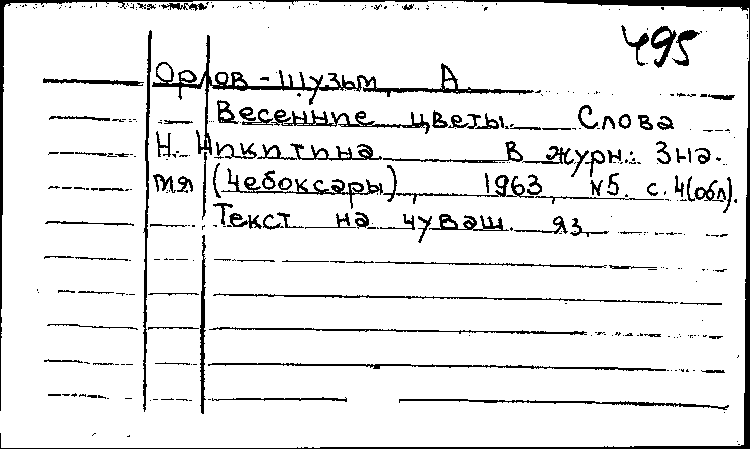 495
Орлов-Шузьм, А.
Весенние цветы. Слова
Н. Никитина. В журн.: Зна-
мя (Чебоксары), 1963, №5. с. 4(обл).
Текст на чуваш. яз.